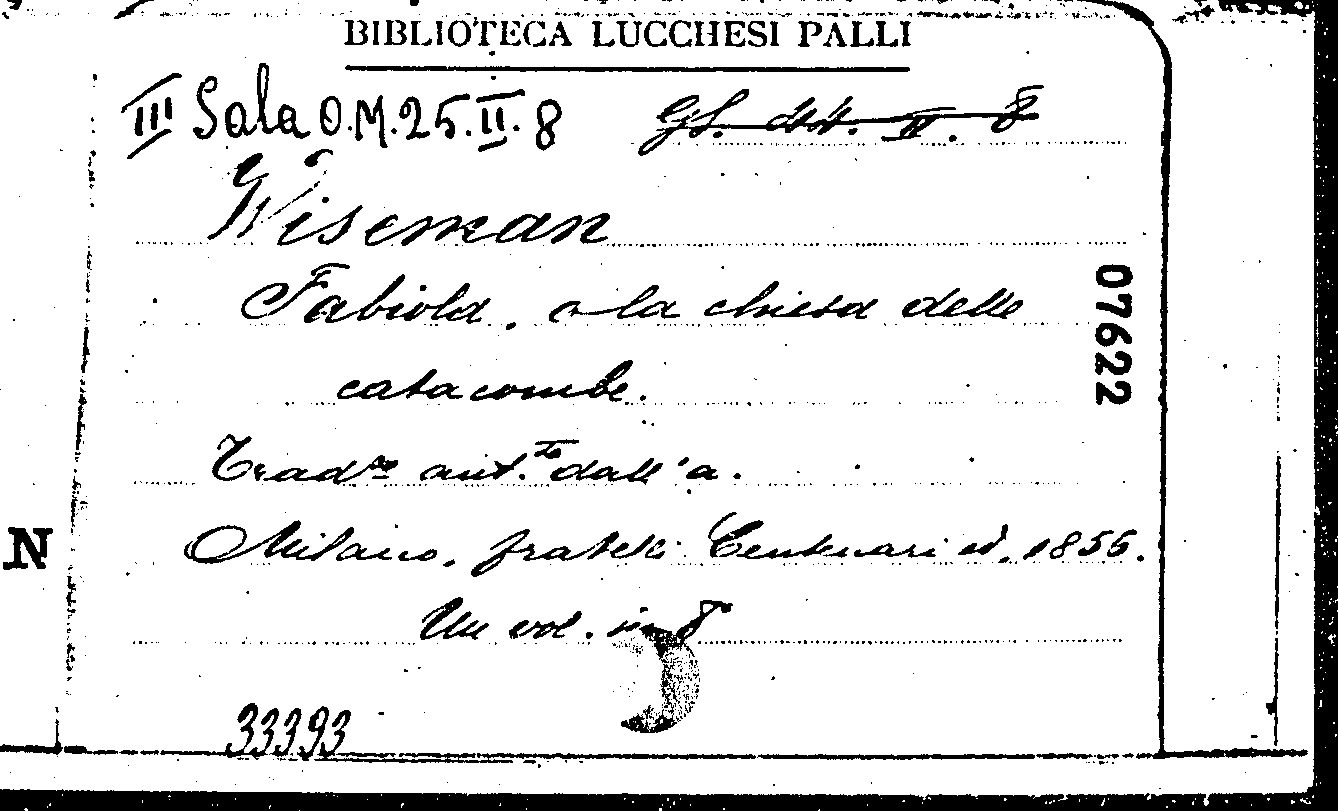 BIBLIOTECA LUCCHESI PALLI
III Sala O.M.25.II.8 Gl. 44. II. 8
Wiseman
Fabiola, o la chiesa delle
catacombe.
Trad.ne aut.ta dall'a.
Milano, fratelli Centenari ed. 1856.
Un vol. in 8°
33393
07622
N